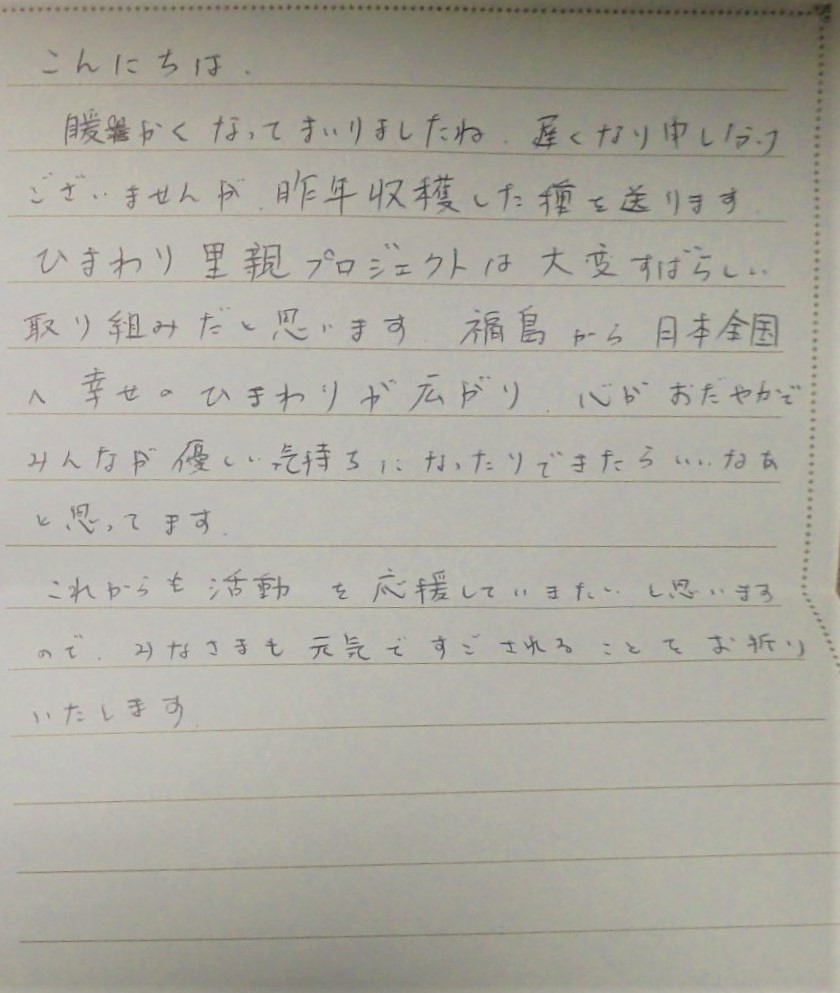 こんにちは.
暖かくなってまいりましたね. 遅くなり申しわけ
ございませんが、昨年収穫した種を送ります.
ひまわり里親プロジェクトは大変すばらしい
取り組みだと思います. 福島から日本全国
へ幸せのひまわりが広がり、心がおだやかで
みんなが優しい気持ちになったりできたらいいなあ
と思ってます.
これからも活動を応援していきたいと思います
ので、みなさまも元気ですごされることをお祈り
いたします.